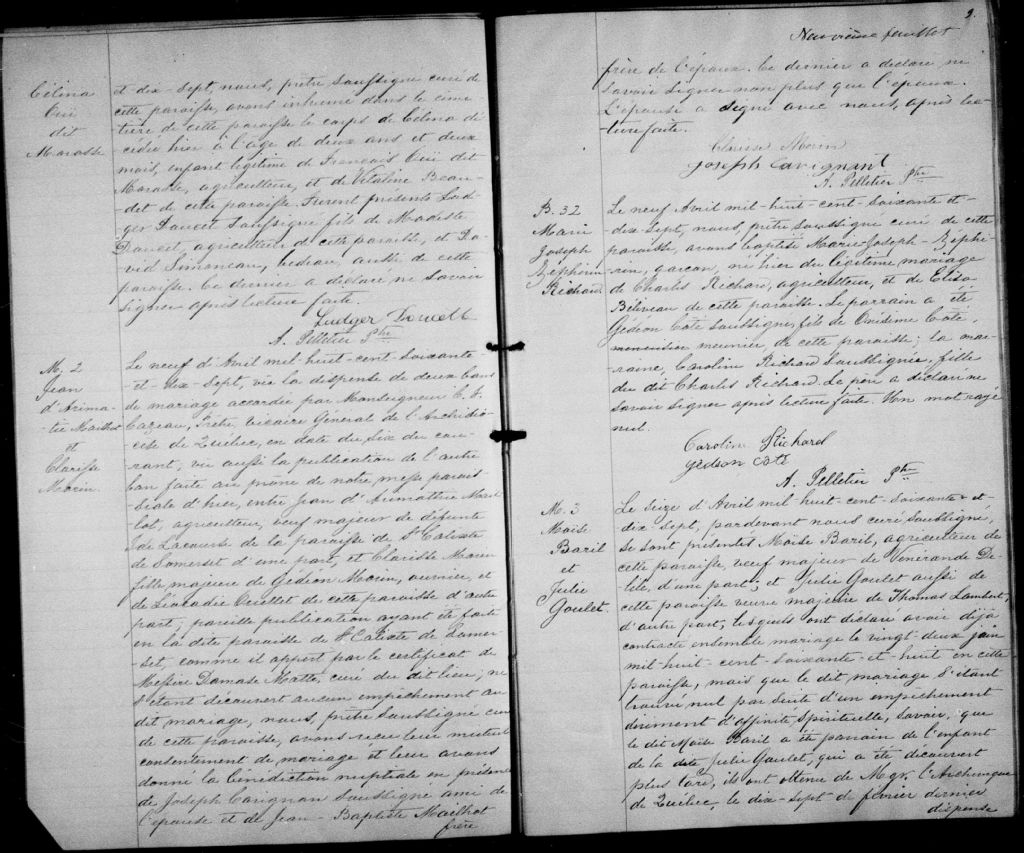 Célina
Cui
dit
Marasse
et dix-sept, nous, prêtre soussigné curé de
cette paroisse, avons inhumé dans le cime-
tière de cette paroisse le corps de Célina dé
cédée hier à l'âge de deux ans et deux
mois, enfant légitime de François Cui dit
Marasse, agriculteur, et de Vitaline Beau-
det de cette paroisse. Furent présents Lud-
ger Doucet soussigné fils de Modeste
Doucet, agriculteur de cette paroisse, et Da-
vid Simoneau, bedeau, aussi de cette
paroisse. Ce dernier a déclaré ne savoir
signer après lecture faite.
Ludger Doucett
A. Pelletier Ptre
M. 2
Jean
d'Arima-
tie Mailhot
et
Clarisse
Morin.
Le neuf d'Avril mil-huit-cent-soixante
-et-dix-sept, vu la dispense de deux bans
de mariage accordée par Monseigneur C. F.
Cazeau, Prêtre, Vicaire Général de l'Archidio-
cèse de Québec, en date du six du cou-
rant, vu aussi la publication de l'autre
ban faite au prône de notre messe parois-
siale d'hier, entre Jean d'Arimathie Mail
lot, agriculteur, veuf majeur de défunte
Lacourse de la paroisse de St Calixte
de Somerset d'une part, et Clarisse Morin
fille majeure de Gédéon Morin, ouvrier, et
de Léocadie Ouellet de cette paroisse d'autre
part; pareille publication ayant été faite
en la dite paroisse de St Calixte de Somer-
set, comme il appert par le certificat de
Messire Damase Matte, curé du dit lieu; ne
s'étant découvert aucun empêchement au
dit mariage, nous, prêtre soussigné curé
de cette paroisse, avons reçu leur mutuel
consentement de mariage et leur avons
donné la bénédiction nuptiale en présence
de Joseph Carignan soussigné ami de
l'épouse et de Jean-Baptiste Mailhot
frère
9.
Neuvième feuillet
frère de l'époux. Ce dernier a déclaré ne
savoir signer non plus que l'époux.
L'épouse a signé avec nous, après lec-
ture faite.
Clarisse Morin
Joseph Carignant
A. Pelletier Ptre
B. 32
Marie
Joseph
Zéphirin
Richard
Le neuf Avril mil-huit-cent-soixante et-
dix-sept, nous, prêtre soussigné curé de cette
paroisse, avons baptisé Marie-Joseph-Zéphi-
rin, garçon, né hier du légitime mariage
de Charles Richard, agriculteur, et de Eliza
Béliveau de cette paroisse. Le parrain a été
Gédéon Côté soussigné, fils de Onésime Côté,
menuisier meunier, de cette paroisse; la mar-
raine, Caroline Richard soussignée, fille
du dit Charles Richard. Le père a déclaré ne
savoir signer après lecture faite. Un mot rayé
nul.
Caroline Richard
Gédéon Coté
A. Pelletier Ptre
M. 3
Moïse
Baril
et
Julie
Goulet.
Le seize d'Avril mil huit-cent-soixante-et-
dix-sept, pardevant nous curé soussigné,
se sont présentés Moïse Baril, agriculteur de
cette paroisse, veuf majeur de Vénérande De-
lisle, d'une part; et Julie Goulet aussi de
cette paroisse veuve majeure de Thomas Lambert,
d'autre part, lesquels ont déclaré avoir déjà
contracté ensemble mariage le vingt-deux juin
mil-huit-cent-soixante-et-huit en cette
paroisse, mais que le dit mariage s'étant
trouvé nul par suite d'un empêchement
dirimant d'affinité spirituelle, savoir, que
le dit Moïse Baril a été parrain de l'enfant
de la dite Julie Goulet, qui a été découvert
plus tard, ils ont obtenu de Mgr. l'Archevêque
de Québec le dix-sept de février dernier
dispense